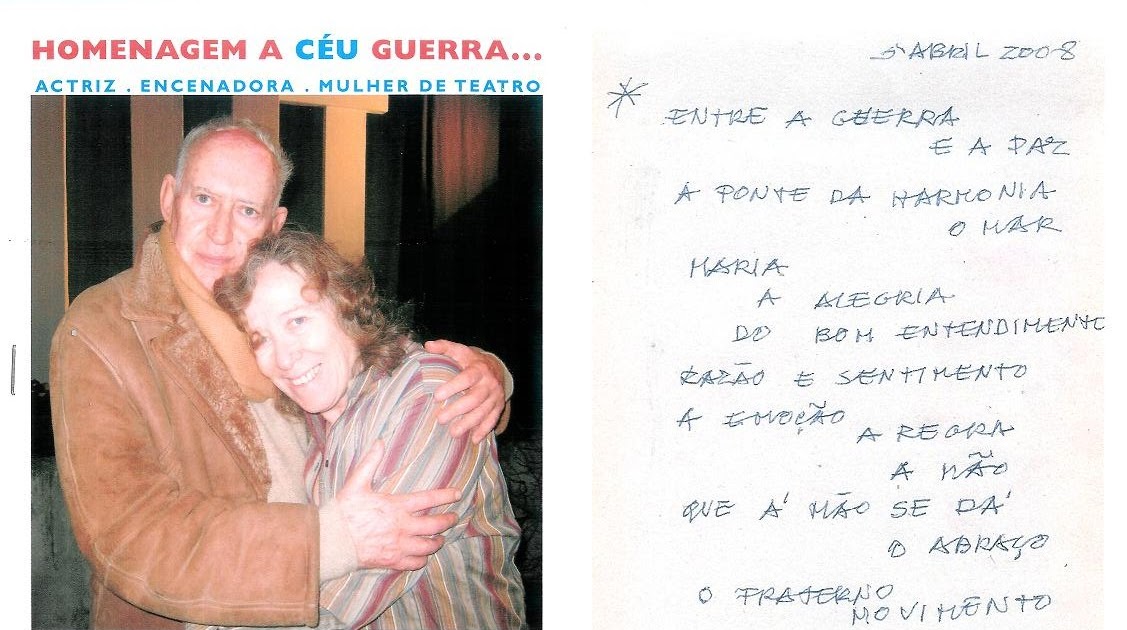 HOMENAGEM A CÉU GUERRA...
ACTRIZ . ENCENADORA . MULHER DE TEATRO
5 ABRIL 2008
* ENTRE A GUERRA
E A PAZ
A PONTE DA HARMONIA
O MAR
MARIA
A ALEGRIA
DO BOM ENTENDIMENTO
RAZÃO E SENTIMENTO
A EMOÇÃO
A REGRA
A MÃO
QUE À MÃO SE DÁ
O ABRAÇO
O FRATERNO
MOVIMENTO